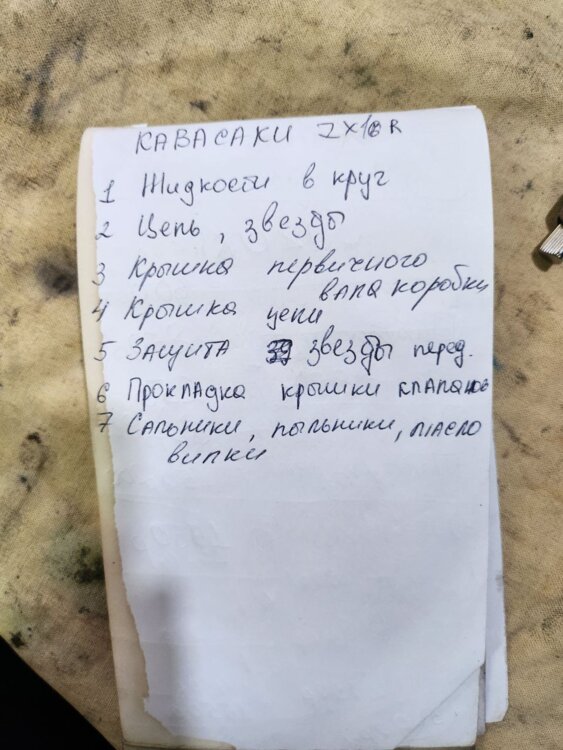 КАВАСАКИ ZX10R
1 Жидкости в круг
2 Цепь, звезды
3 Крышка первичного
вала коробки
4 Крышка цепи
5 Защита звезды перед.
6 Прокладка крышки клапанов
7 Сальники, пыльники, масло
вилки